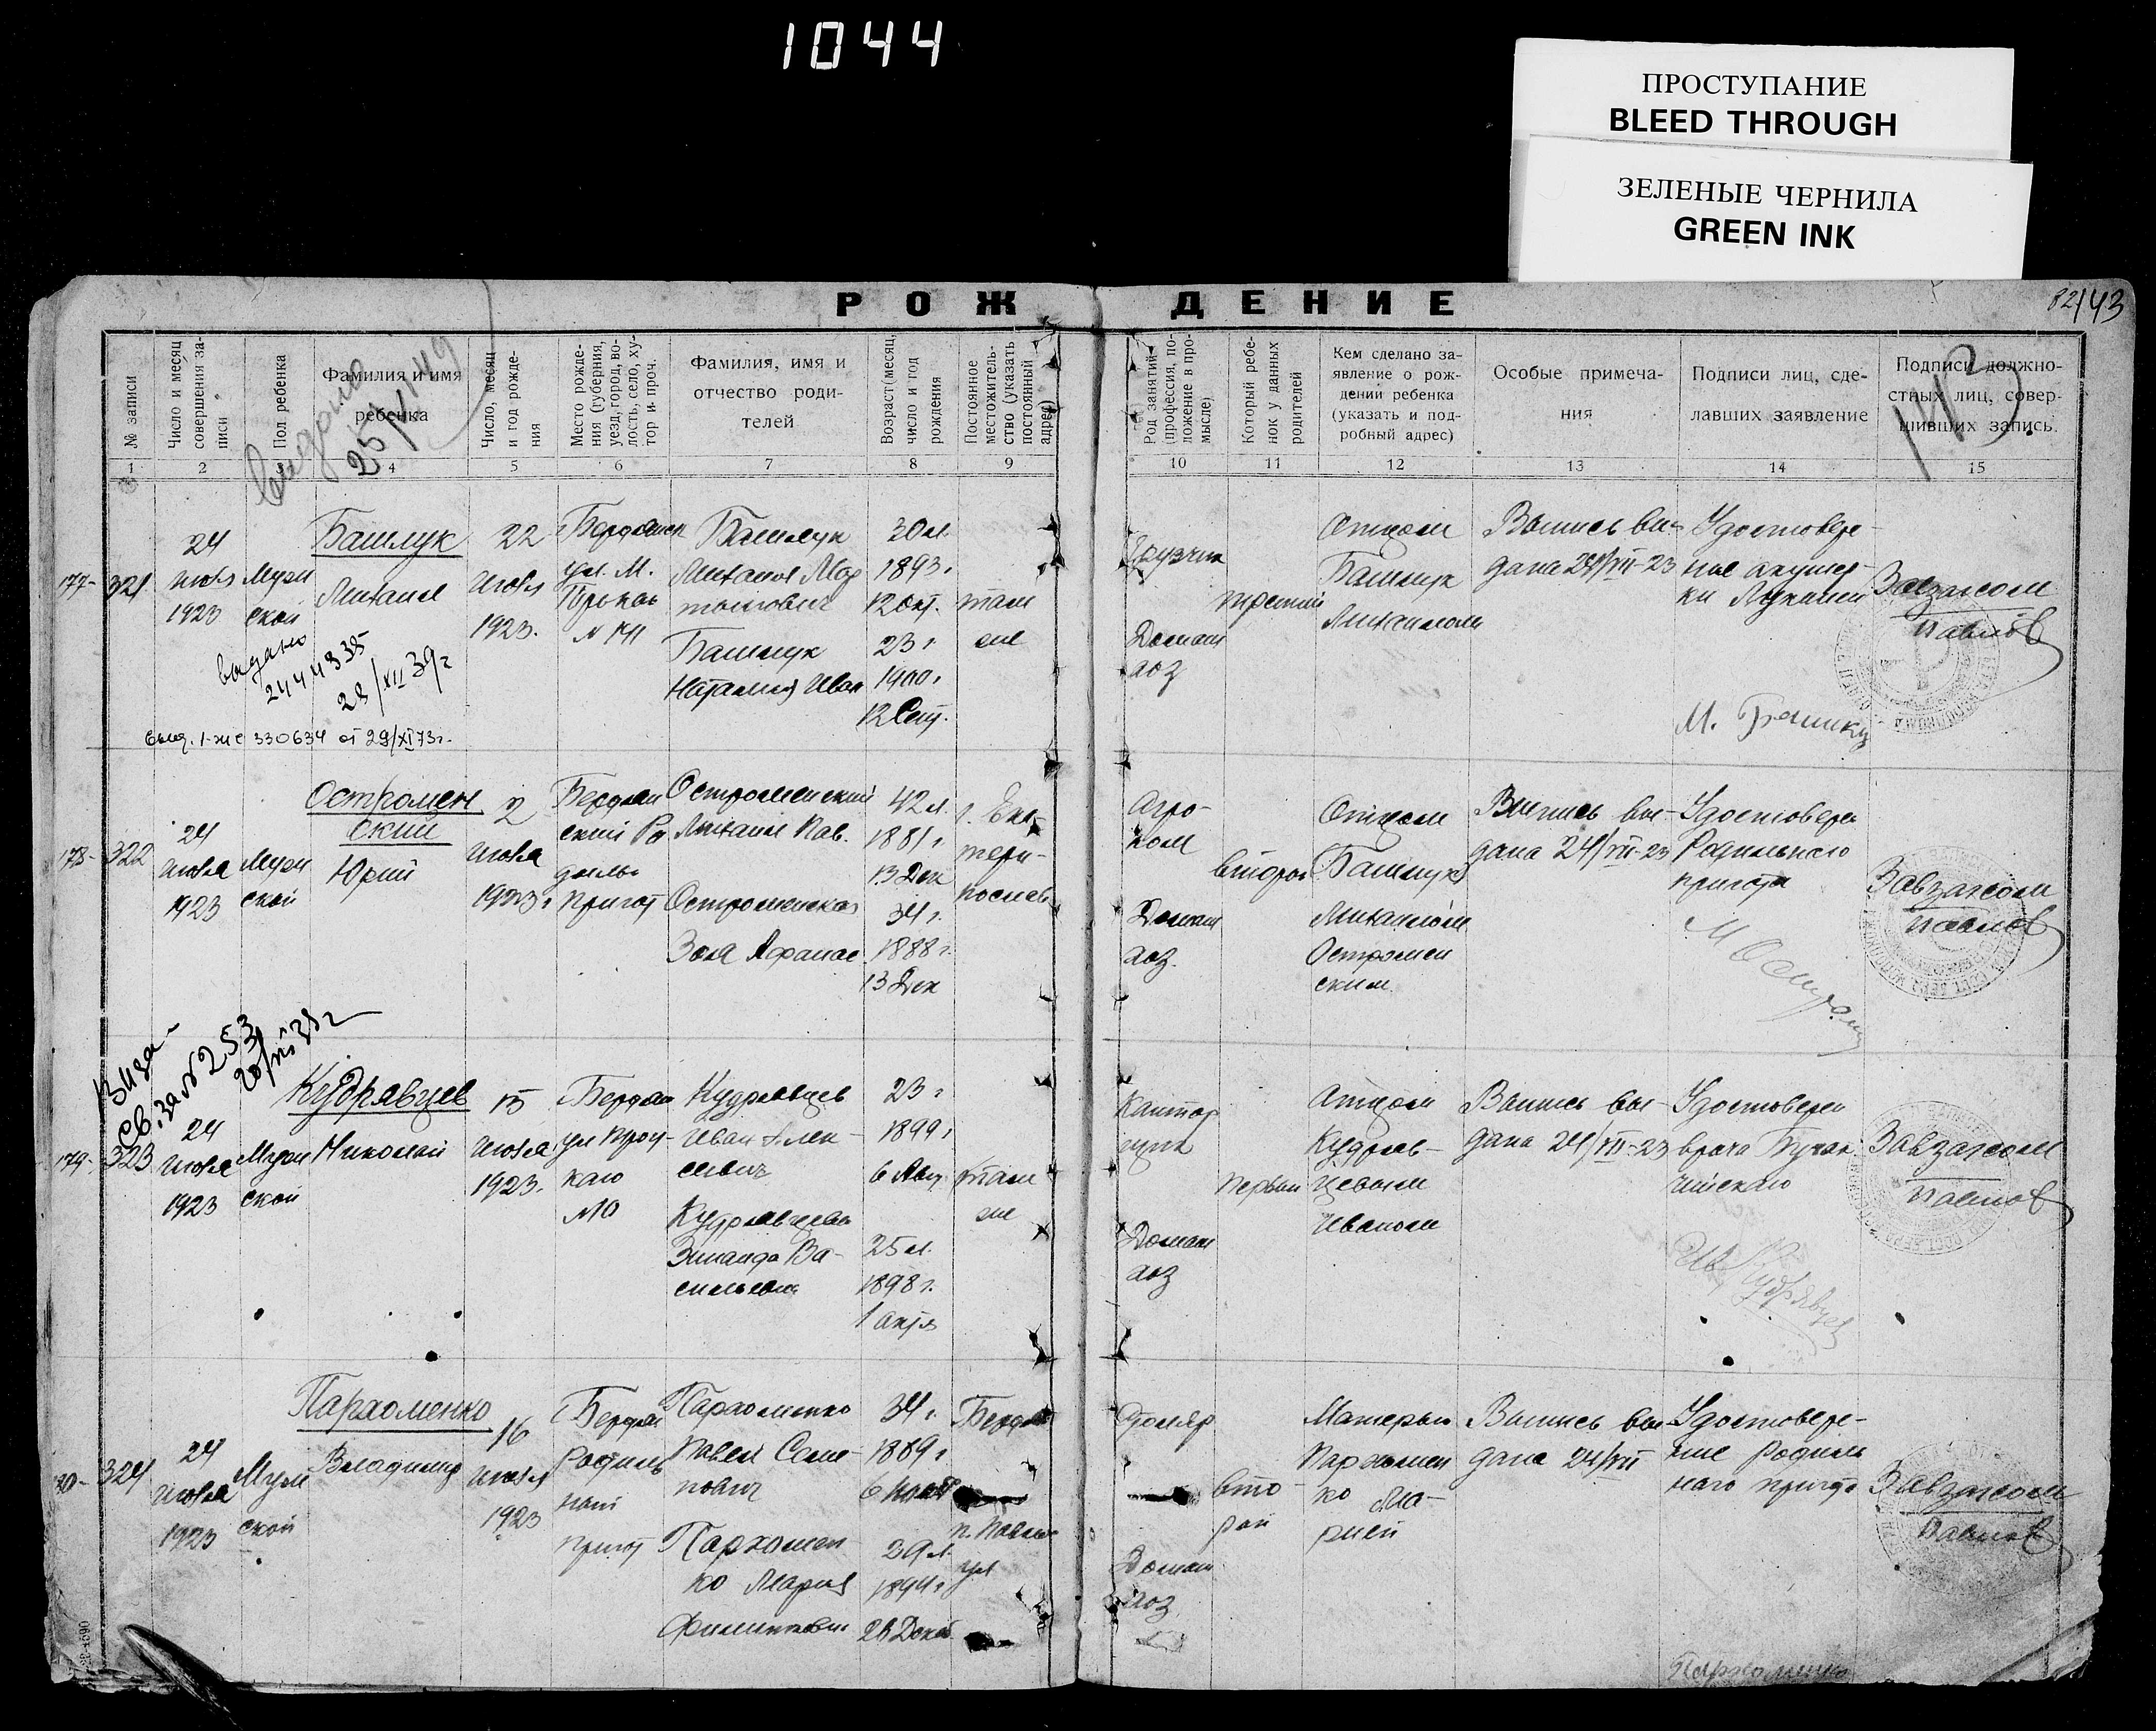 1044
ПРОСТУПАНИЕ
BLEED THROUGH
ЗЕЛЕНЫЕ ЧЕРНИЛА
GREEN INK
РОЖДЕНИЕ
82
143
143
№ записи
Число и месяц совершения записи
Пол ребенка
Фамилия и имя
ребенка
Число, месяц и год рождения
Место рождения (губерния, уезд, город, волость, село, хутор и проч.
Фамилия, имя и
отчество роди-
телей
Возраст (месяц, число и год рождения
Постоянное местожительство (указать постоянный адрес)
Род занятий (профессия, положение в промысле)
Который ребенок у данных родителей
Кем сделано за-
явление о рож-
дении ребенка
(указать и под-
робный адрес)
Особые примеча-
ния
Подписи лиц, сде-
лавших заявление
Подписи должно-
стных лиц, совер-
шивших запись.
1 2 3 4 5 6 7 8 9 10 11 12 13 14 15
25
177-
321
24
июля
1923
Муж
ской
Башлук
Михаил
22
июля
1923.
Бердянск
ул. М.
Горького
Башлук
Михаил
Башлук
Наталия Иван
30 л.
1893 г
12 Окт.
23 г
1900 г
12 Сент.
там
же
Грузчик
Домаш
хоз
третий
Отцом
Башлук
Михаилом
Выпись вы-
дана 24/VII-23
Удостовере-
ние акушер-
ки
Завзагсом
Павлов
М. Башлук
выдано
28/XII 39 г
330634 от 29/XI 73 г.
178-
322
24
июля
1923
Муж
ской
Остромен
ский
Юрий
2
июля
1923 г
Бердян
ский Ро
дильн
приют
Остроменский
Михаил Пав.
Остроменская
Зоя Афанас
42 л.
1881 г
13 Дек
34 г.
1888 г
13 Дек
г. Ека-
тери-
нослав
Агро-
ном
Домаш
хоз.
второй
Отцом
Башлук
Михаилом
Остромен
ским.
Выпись вы-
дана 24/VII-23
Удостоверен
Родильного
приюта
Завзагсом
Павлов
св. за № 253
179-
323
24
июля
1923
Муж
ской
Кудрявцев
Николай
15
июля
1923.
Бердян
ул Троц-
кого
№ 10
Кудрявцев
Иван Алек-
сеевич
Кудрявцева
Зинаида Ва-
сильевна
23 г
1899 г
6 Авг
25 л.
1898 г.
1 Окт
там
же
Контор
щик
Домаш
хоз
первый
Отцом
Кудряв-
цевым
Иваном
Выпись вы-
дана 24/VII-23
Удостоверен
врача
Завзагсом
Павлов
Ив Кудрявцев
324
24
июля
1923
Муж
ской
Пархоменко
Владимир
16
июля
1923
Бердян
Родиль
ный
приют
Пархоменко
Павел Семе-
нович
Пархомен
ко Мария
Филипповн
34 г.
1889 г
6 Нояб
29 л.
1894 г
Бердян
ул
Столяр
Домаш
хоз.
вто-
рой
Матерью
Пархомен
ко Ма-
рией
Выпись вы-
дана 24/VII
Удостовере-
ние Родиль
ного приюта
Завзагсом
Павлов
Пархоменко